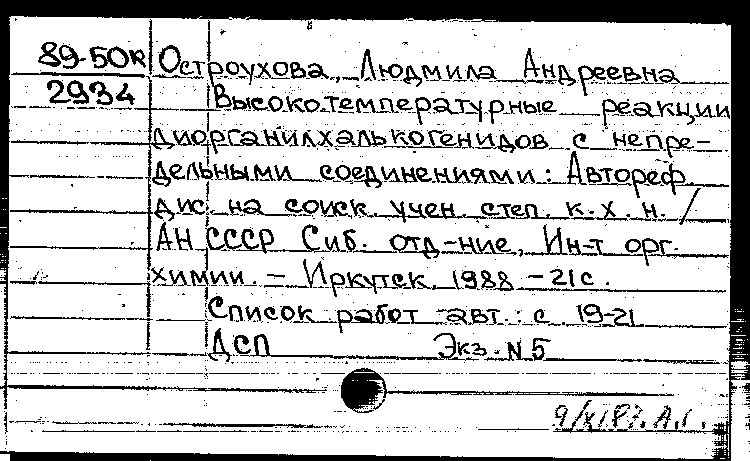 89-50к Остроухова, Людмила Андреевна
2934 Высокотемпературные реакции
диорганилхалькогенидов с непре-
дельными соединениями: Автореф.
дис. на соиск. учен. степ. к. х. н. /
АН СССР Сиб. отд-ние, Ин-т орг.
химии. – Иркутск, 1988 – 21 с.
Список работ авт.: с. 19-21
ДСП Экз. N 5
А.Г.